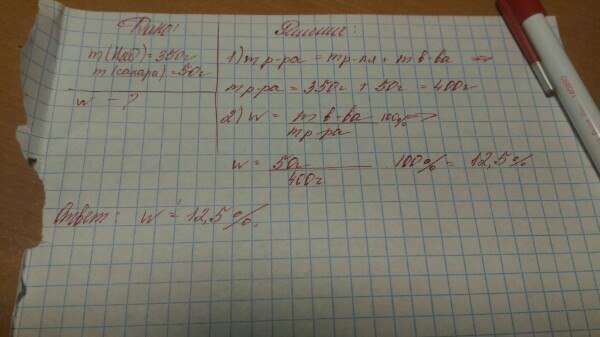 Дано:
m(H2O)=350г
m(сахара)=50г
w - ?
Решение:
1) m р-ра = m р-ля + m в-ва =>
m р-ра = 350г + 50г = 400г
2) w = m в-ва / m р-ра 100% =>
w = 50г / 400г 100% = 12,5%
Ответ: w = 12,5%.